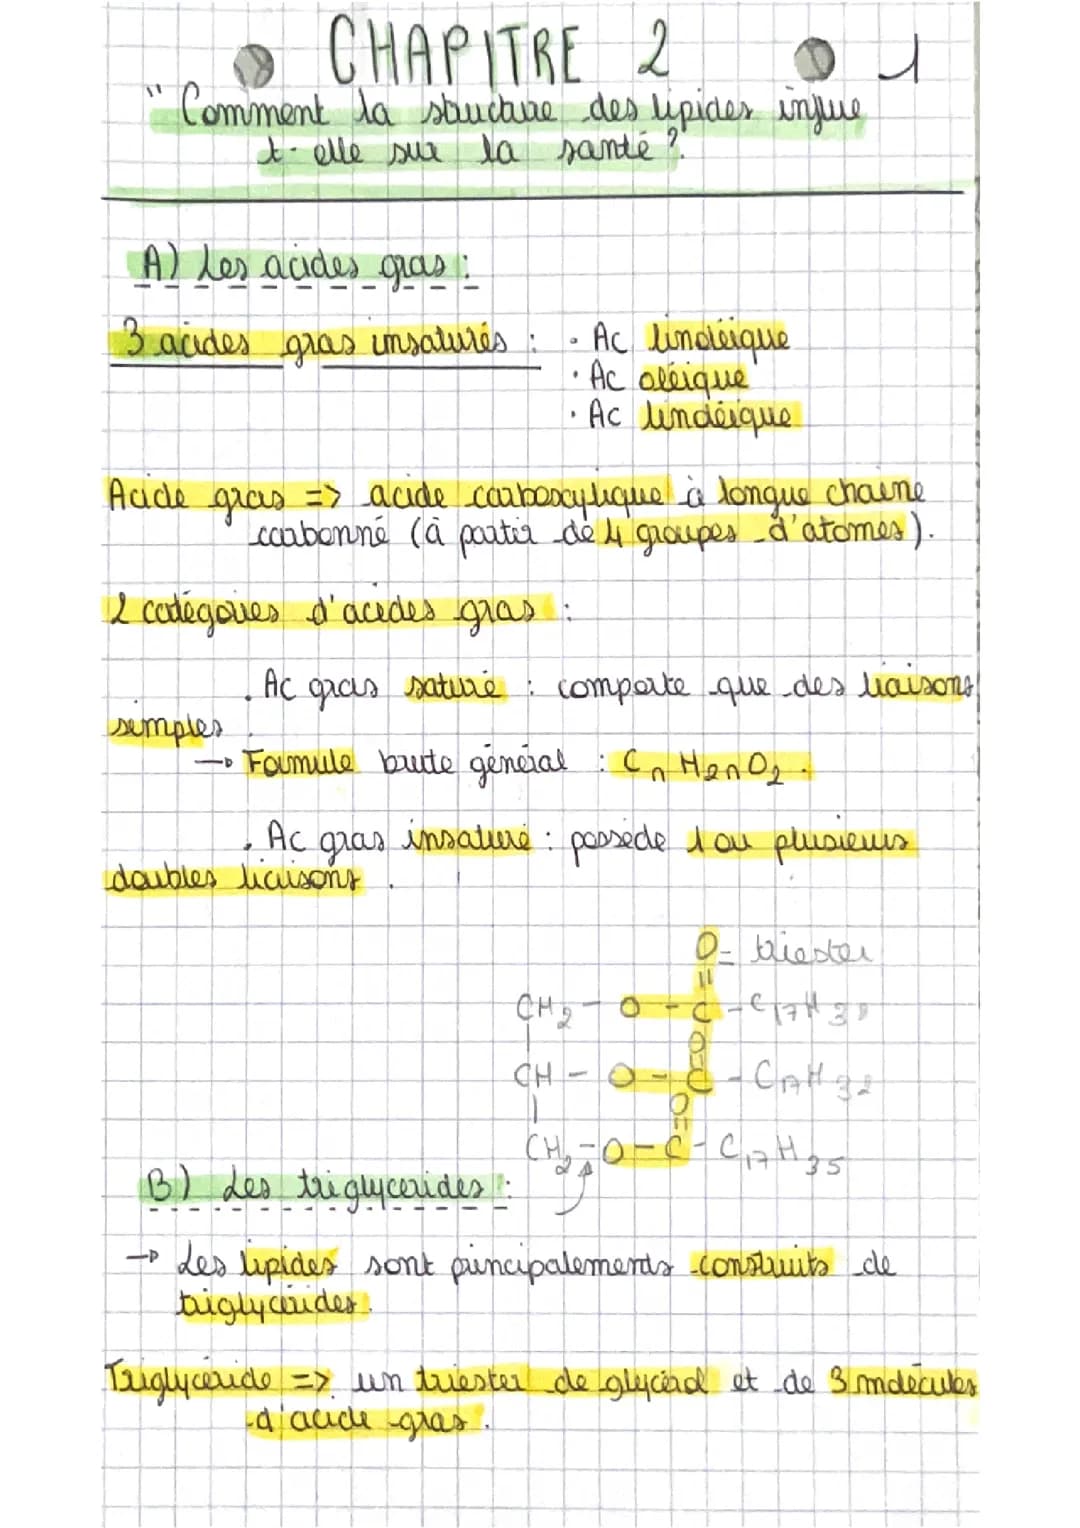 CHAPITRE 2 1
"Comment la structure des lipides influe
t-elle sur la santé ?
A) Les acides gras :
3 acides gras insaturés : • Ac linoléique
• Ac oléique
• Ac linoléique
Acide gras => acide carboxylique à longue chaine
carbonné (à partir de 4 groupes d'atomes).
2 catégories d'acides gras :
. Ac gras saturé : comporte que des liaisons
simples.
→ Formule brute général : CnH2nO2.
. Ac gras insaturé : possède 1 ou plusieurs
doubles liaisons.
O = triester
CH2 - O - C - C17H3
O
CH - O - C - C17H32
O
CH2 - O - C - C17H35
B) Les triglycerides :
→ Les lipides sont principalements construits de
triglycérides.
Triglycéride => un triester de glycérol et de 3 molécules
d'acide gras.